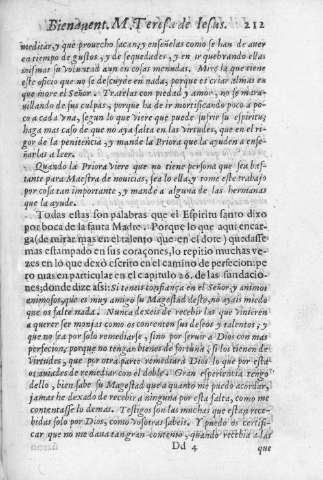 Bienauent. M. Teresa de Iesus. 212
meditar, y què prouecho sacan, y enseñelas como se han de auer
en tiempo de gustos, y de sequedades, y en ir quebrando ellas
mismas su voluntad aun en cosas menudas. Mire la que tiene
este oficio que no se descuyde en nada, porque es criar almas en
que more el Señor. Tratelas con piedad y amor, no se mara-
uillando de sus culpas, porque ha de ir mortificando poco a po-
co a cada vna, segun lo que viere que puede sufrir su espiritu;
haga mas caso de que no aya falta en las virtudes, que en el ri-
gor de la penitencia, y mande la Priora que la ayuden a ense-
ñarlas a leer.
Quando la Priora viere que no tiene persona que sea bas-
tante para Maestra de nouicias, sea lo ella, y tome este trabajo
por cosa tan importante, y mande a alguna de las hermanas
que la ayude.
Todas estas son palabras que el Espiritu santo dixo
por boca de la santa Madre. Porque lo que aqui encar-
ga (de mirar mas en el talento que en el dote) quedasse
mas estampado en sus coraçones, lo repitio muchas ve-
zes en lo que dexò escrito en el camino de perfecion: pe
ro mas en particular en el capitulo 26. de las fundacio-
nes; donde dize assi: Si teneis confiança en el Señor, y animos
animosos, que es muy amigo su Magestad desto, no ayais miedo
que os falte nada. Nunca dexeis de recebir las que vinieren
a querer ser monjas como os contenten sus deseos y talentos; y
que no sea por solo remediarse, sino por seruir a Dios con mas
perfecion, porque no tengan bienes de fortuna, si los tienen de
virtudes, que por otra parte remediarà Dios lo que por esta
os auiades de remediar con el doble. Gran esperiencia tengo
dello, bien sabe su Magestad que a quanto me puedo acordar,
jamas he dexado de recebir a ninguna por esta falta, como me
contentasse lo demas. Testigos son las muchas que estan rece-
bidas solo por Dios, como vosotras sabeis. Y puedo os certifi-
car que no me daua tan gran contento, quando recebia a las
Dd 4 que